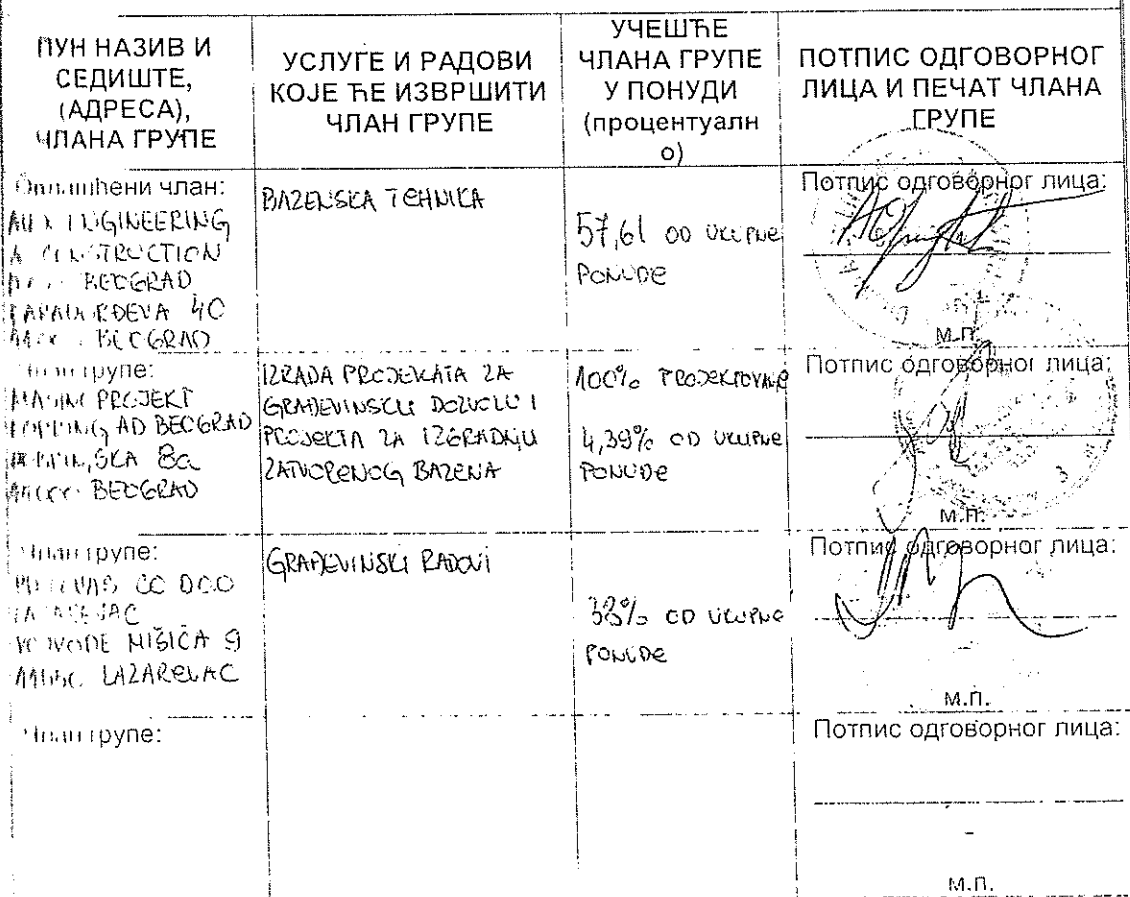 ПУН НАЗИВ И
СЕДИШТЕ,
(АДРЕСА),
ЧЛАНА ГРУПЕ
УСЛУГЕ И РАДОВИ
КОЈЕ ЋЕ ИЗВРШИТИ
ЧЛАН ГРУПЕ
УЧЕШЋЕ
ЧЛАНА ГРУПЕ
У ПОНУДИ
(процентуалн
о)
ПОТПИС ОДГОВОРНОГ
ЛИЦА И ПЕЧАТ ЧЛАНА
ГРУПЕ
члан:
ENGINEERING
CONSTRUCTION
BEOGRAD
4C
BEOGRAD
BAZENSKA TEHNIKA
57,61 OD UKUPNE
PONUDE
Потпис одговорног лица:
М.П.
групе:
PROJEKT
AD BEOGRAD
8a
BEOGRAD
IZRADA PROJEKATA ZA
GRAĐEVINSKU DOZVOLU I
PROJEKTA ZA IZGRADNJU
ZATVORENOG BAZENA
100% PROJEKTOVANJE
4,39% OD UKUPNE
PONUDE
Потпис одговорног лица:
М.П.
Члан групе:
CO DOO
VOJVODE MIŠIĆA 9
LAZAREVAC
GRAĐEVINSKI RADOVI
38% OD UKUPNE
PONUDE
Потпис одговорног лица:
М.П.
Члан групе:
Потпис одговорног лица:
М.П.